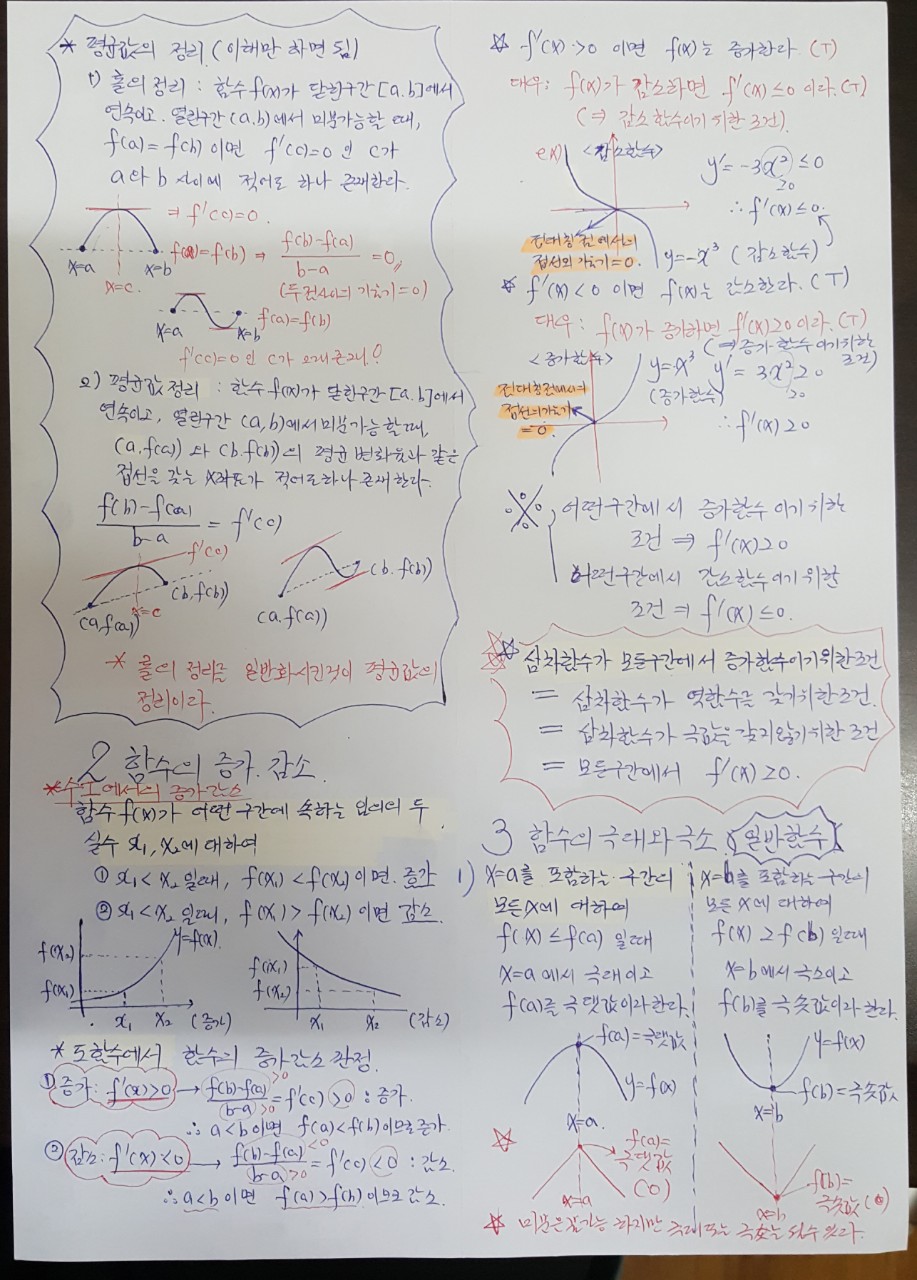 * 평균값의 정리 (이해만 하면 됨)
1) 롤의 정리 : 함수 f(x)가 닫힌구간 [a.b]에서
연속이고. 열린구간 (a,b)에서 미분가능할 때,
f(a)=f(b) 이면 f'(c)=0 인 c가
a와 b 사이에 적어도 하나 존재한다.
⇒ f'(c)=0.
x=a x=b
x=c.
f(a)=f(b) ⇒ f(b)-f(a) / b-a = 0
(두점사이의 기울기=0)
x=a x=b f(a)=f(b)
f'(c)=0 인 c가 2개존재!
2) 평균값 정리 : 함수 f(x)가 닫힌구간 [a.b]에서
연속이고, 열린구간 (a,b)에서 미분가능할때,
(a.f(a)) 와 (b.f(b))의 평균변화율과 같은
접선을 갖는 x좌표가 적어도하나 존재한다.
f(b)-f(a) / b-a = f'(c)
f'(c)
(b,f(b))
(a,f(a)) x=c
(b.f(b))
(a.f(a))
* 롤의 정리를 일반화시킨것이 평균값의
정리이다.
2 함수의 증가.감소.
*수I에서의 증가감소
함수 f(x)가 어떤 구간에 속하는 임의의 두
실수 x₁, x₂에 대하여
① x₁<x₂ 일때, f(x₁)<f(x₂)이면. 증가
② x₁<x₂ 일때, f(x₁)>f(x₂)이면 감소.
f(x₂) y=f(x).
f(x₁)
x₁ x₂ (증가)
f(x₁)
f(x₂)
x₁ x₂ (감소)
* 도함수에서 함수의 증가감소 판정.
① 증가: f'(x)>0 → f(b)-f(a) >0 / b-a >0 = f'(c) >0 : 증가.
∴ a<b이면 f(a)<f(b)이므로 증가.
② 감소: f'(x)<0 → f(b)-f(a) <0 / b-a >0 = f'(c) <0 : 감소.
∴ a<b이면 f(a)>f(b)이므로 감소.
☆ f'(x)>0 이면 f(x)는 증가한다. (T)
대우: f(x)가 감소하면 f'(x)≤0 이다.(T)
(⇒ 감소함수이기위한 조건).
ex) <감소함수>
y'=-3x²≤0
≥0
∴ f'(x)≤0.
점대칭점에서의
접선의 기울기=0.
y=-x³ (감소함수)
☆ f'(x)<0 이면 f(x)는 감소한다.(T)
대우: f(x)가 증가하면 f'(x)≥0이다.(T)
(⇒증가함수이기위한
조건)
<증가함수>
y=x³ y'=3x²≥0
(증가함수) ≥0
∴ f'(x)≥0
점대칭점에서의
접선의기울기
=0.
※ 어떤구간에서 증가함수이기위한
조건 ⇒ f'(x)≥0
어떤구간에서 감소함수이기위한
조건 ⇒ f'(x)≤0.
☆☆ 삼차함수가 모든구간에서 증가함수이기위한조건
= 삼차함수가 역함수를 갖기위한조건.
= 삼차함수가 극값을 갖지않기위한조건
= 모든구간에서 f'(x)≥0.
3 함수의 극대와 극소 (일반함수)
1) x=a를 포함하는 구간의
모든 x에 대하여
f(x)≤f(a) 일때
x=a에서 극대이고
f(a)를 극댓값이라한다.
f(a)=극댓값
y=f(x)
x=a.
☆ f(a)=
극댓값
(O)
x=a
x=b를 포함하는 구간의
모든 x에 대하여
f(x)≥f(b) 일때
x=b에서 극소이고
f(b)를 극솟값이라 한다.
y=f(x)
f(b)=극솟값
x=b
f(b)=
극솟값 (O)
x=b
☆ 미분은 불가능 하지만 극대또는 극소는 될수 있다.